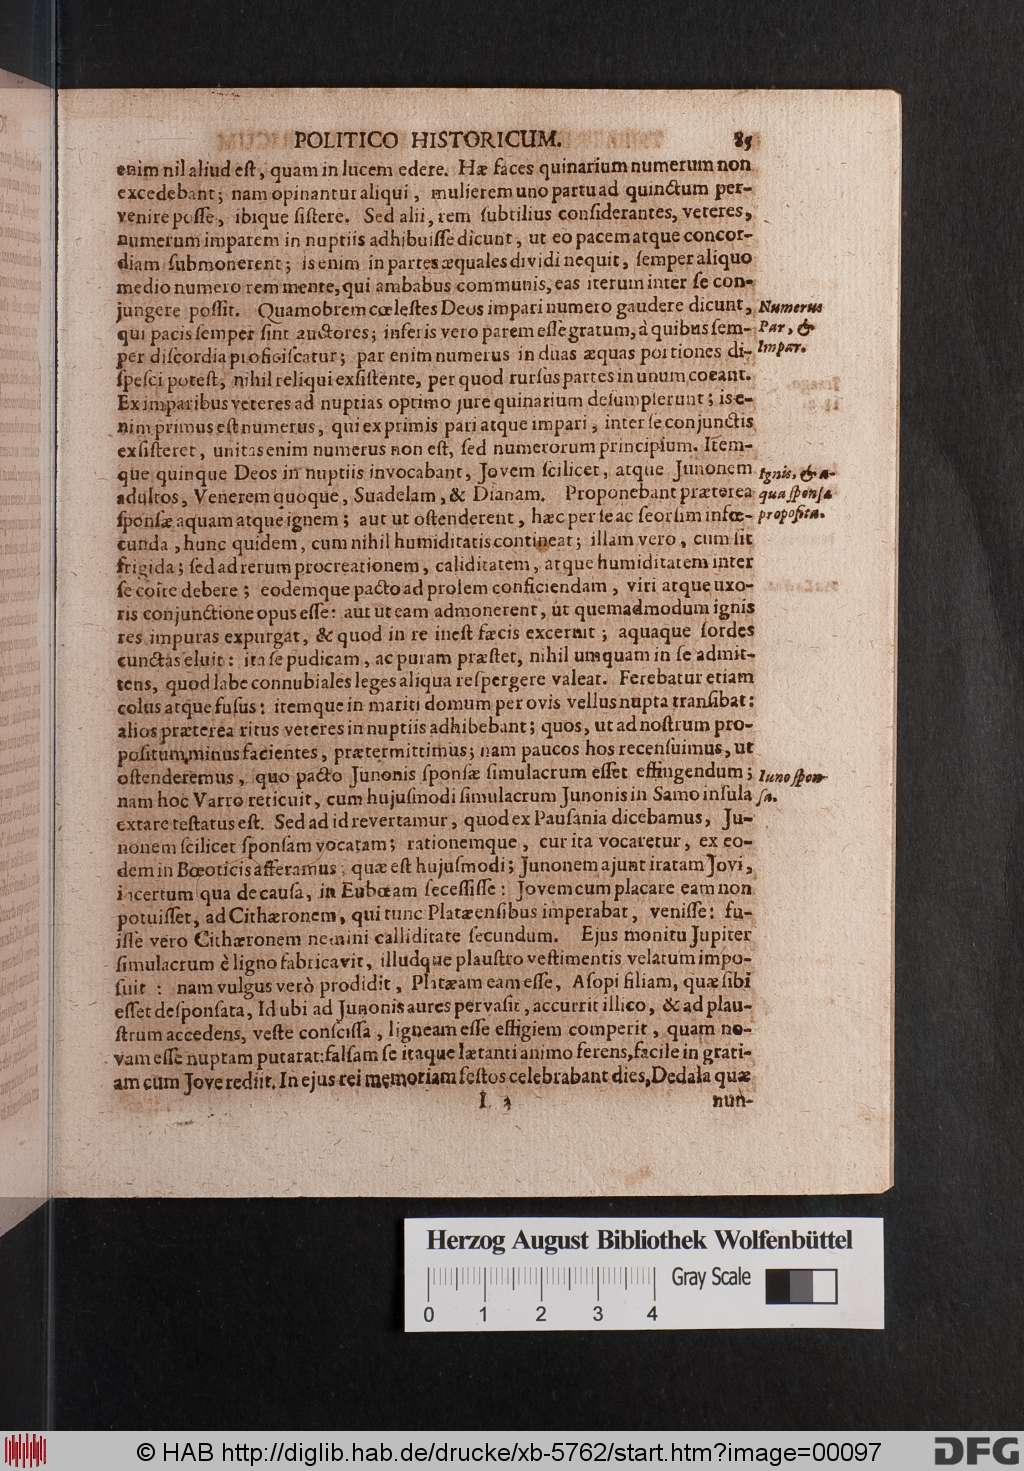 POLITICO HISTORICUM. 85
enim nil aliud eſt, quam in lucem edere. Hæ faces quinarium numerum non
excedebant; nam opinantur aliqui, mulierem uno partu ad quinctum per-
venire poſſe, ibique ſiſtere. Sed alii, rem ſubtilius conſiderantes, veteres,
numerum imparem in nuptiis adhibuiſſe dicunt, ut eo pacem atque concor-
diam ſubmonerent; is enim in partes æquales dividi nequit, ſemper aliquo
medio numero remmente, qui ambabus communis, eas iterum inter ſe con-
jungere poſſit. Quamobrem cœleſtes Deos impari numero gaudere dicunt,
Numerus
qui pacis ſemper ſint auctores; inferis vero parem eſſe gratum, à quibus ſem-
Par, &
per diſcordia proficiſcatur; par enim numerus in duas æquas portiones di-
Impar.
ſpeſci poteſt, nihil reliqui exſiſtente, per quod rurſus partes in unum coeant.
Ex imparibus veteres ad nuptias optimo jure quinarium deſumpſerunt; is e-
nim primus eſt numerus, qui ex primis pari atque impari, inter ſe conjunctis
exſiſteret, unitas enim numerus non eſt, ſed numerorum principium. Item-
que quinque Deos in nuptiis invocabant, Jovem ſcilicet, atque Junonem
Ignis, & a-
adultos, Venerem quoque, Suadelam, & Dianam. Proponebant præterea
qua ſponſa
ſponſæ aquam atque ignem; aut ut oſtenderent, hæc per ſe ac ſeorſim infœ-
propoſita.
cunda, hunc quidem, cum nihil humiditatis contineat; illam vero, cum ſit
frigida; ſed ad rerum procreationem, caliditatem, atque humiditatem inter
ſe coire debere; eodemque pacto ad prolem conficiendam, viri atque uxo-
ris conjunctione opus eſſe: aut ut eam admonerent, ut quemadmodum ignis
res impuras expurgat, & quod in re ineſt fæcis excernit; aquaque ſordes
cunctas eluit: ita ſe pudicam, ac puram præſtet, nihil unquam in ſe admit-
tens, quod labe connubiales leges aliqua reſpergere valeat. Ferebatur etiam
colus atque fuſus: itemque in mariti domum per ovis vellus nupta tranſibat:
alios præterea ritus veteres in nuptiis adhibebant; quos, ut ad noſtrum pro-
poſitum minus facientes, prætermittimus; nam paucos hos recenſuimus, ut
oſtenderemus, quo pacto Junonis ſponſæ ſimulacrum eſſet effingendum;
Iuno ſpon-
nam hoc Varro reticuit, cum hujuſmodi ſimulacrum Junonis in Samo inſula
ſa.
extare teſtatus eſt. Sed ad id revertamur, quod ex Pauſania dicebamus, Ju-
nonem ſcilicet ſponſam vocatam; rationemque, cur ita vocaretur, ex eo-
dem in Bœoticis afferamus; quæ eſt hujuſmodi; Junonem ajunt iratam Jovi,
incertum qua de cauſa, in Eubœam ſeceſſiſſe: Jovem cum placare eam non
potuiſſet, ad Cithæronem, qui tunc Platæenſibus imperabat, veniſſe: fu-
iſſe vero Cithæronem nemini calliditate ſecundum. Ejus monitu Jupiter
ſimulacrum è ligno fabricavit, illudque plauſtro veſtimentis velatum impo-
ſuit: nam vulgus verò prodidit, Platæam eam eſſe, Aſopi filiam, quæ ſibi
eſſet deſponſata, Id ubi ad Junonis aures pervaſit, accurrit illico, & ad plau-
ſtrum accedens, veſte conſciſſa, ligneam eſſe effigiem comperit, quam no-
vam eſſe nuptam putarat: falſam ſe itaque lætanti animo ferens, facile in grati-
am cum Jove rediit. In ejus rei memoriam feſtos celebrabant dies, Dedala quæ
L 3 nun-
Herzog August Bibliothek Wolfenbüttel
Gray Scale
0 1 2 3 4
© HAB http://diglib.hab.de/drucke/xb-5762/start.htm?image=00097
DFG